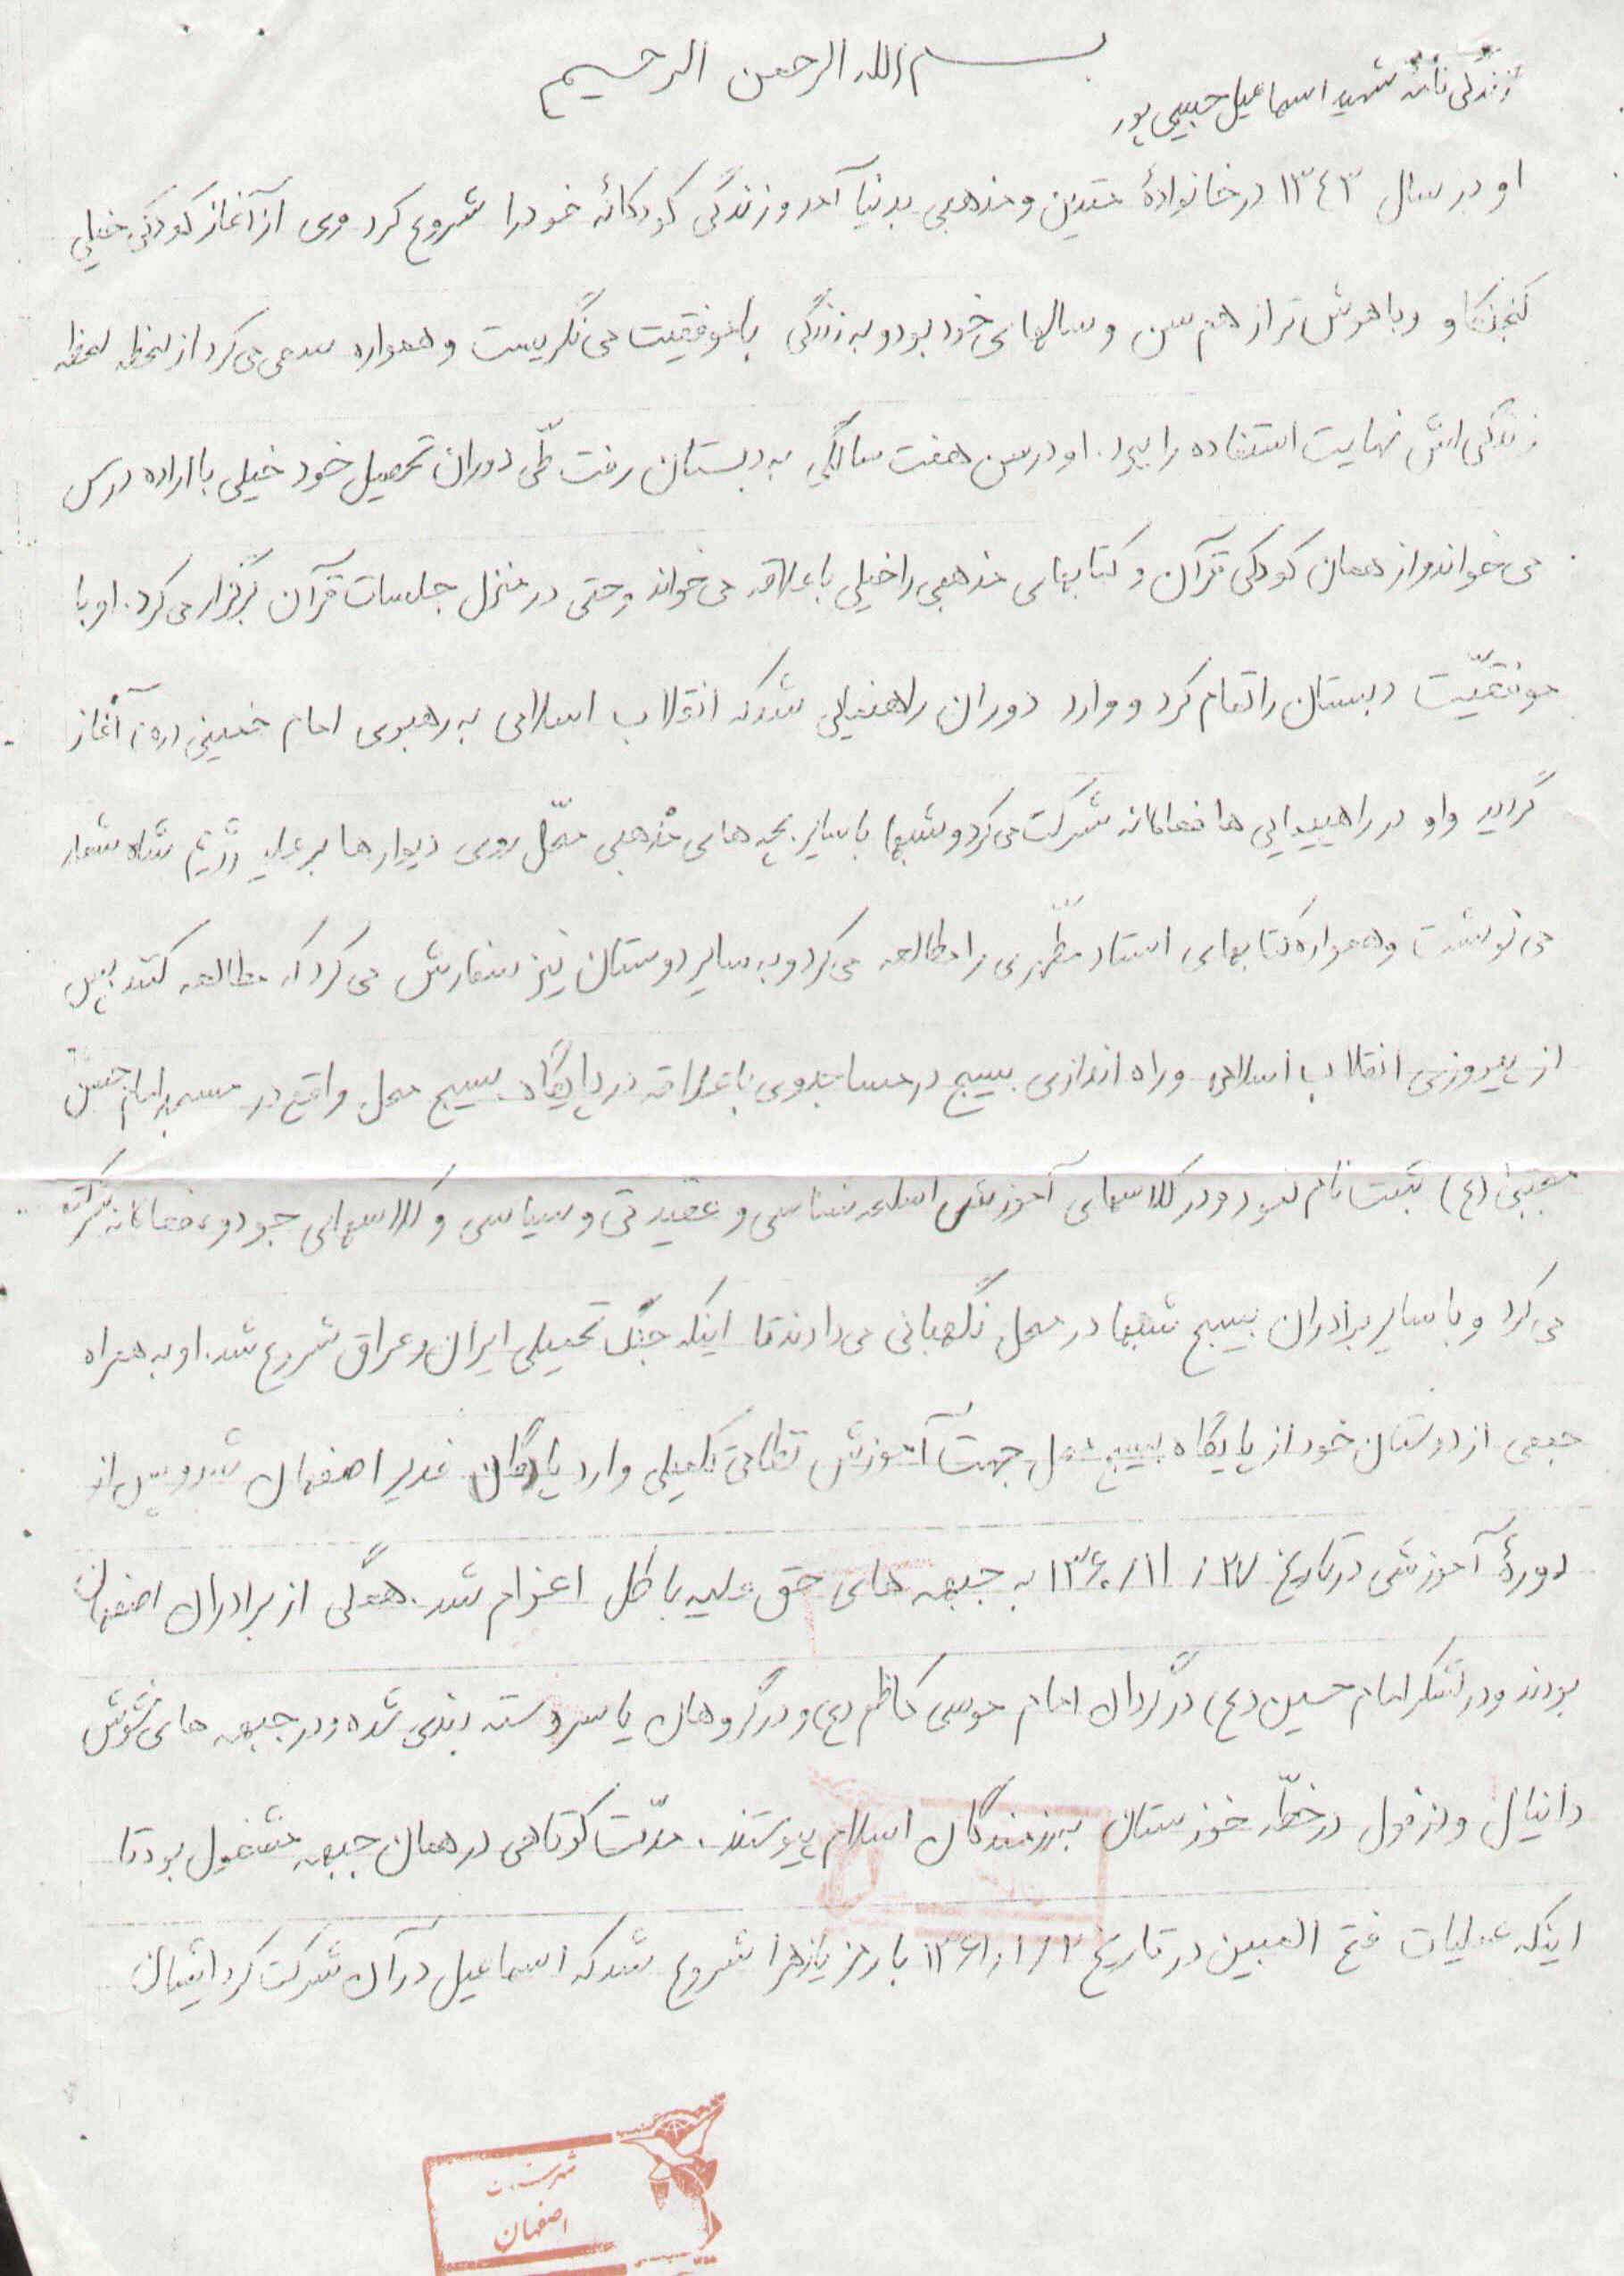 بسم الله الرحمن الرحیم
زندگی نامۀ شهید اسماعیل حبیبی پور
او در سال ۱۳٤۳ در خانوادۀ متدین و مذهبی بدنیا آمد و زندگی کودکانۀ خود را شروع کرد وی از آغاز کودکی خیلی
کنجکاو و باهوش تر از هم سن و سالهای خود بود و به زندگی با موفقیت می نگریست و همواره سعی می کرد از لحظه لحظه
زندگی اش نهایت استفاده را ببرد. او در سن هفت سالگی به دبستان رفت طّی دوران تحصیل خود خیلی با اراده درس
می خواند و از همان کودکی قرآن و کتابهای مذهبی را خیلی با علاقه می خواند و حتی در منزل جلسات قرآن برگزار می کرد. او با
موفقیّت دبستان را تمام کرد و وارد دوران راهنمایی شد که انقلاب اسلامی به رهبری امام خمینی (ره) آغاز
گردید و او در راهپیمایی ها فعالانه شرکت می کرد و شبها با سایر بچه های مذهبی محّل روی دیوارها بر علیه رژیم شاه شعار
می نوشت و همواره کتابهای استاد مطّهری را مطالعه می کرد و به سایر دوستان نیز سفارش می کرد که مطالعه کنند پس
از پیروزی انقلاب اسلامی و راه اندازی بسیج در مساجد وی با علاقه در پایگاه بسیج محل واقع در مسجد امام حسن
مجتبی (ع) ثبت نام نمود و در کلاسهای آموزش اسلحه شناسی و عقیدتی و سیاسی و کلاسهای جودو، فعالانه شرکت
می کرد و با سایر برادران بسیج شبها در محل نگهبانی می دادند تا اینکه جنگ تحمیلی ایران و عراق شروع شد. او به همراه
جمعی از دوستان خود از پایگاه بسیج محل جهت آموزش نظامی تکمیلی وارد پادگان غدیر اصفهان شد و پس از
دورۀ آموزشی در تاریخ ۲۷ / ۱۱ / ۱۳۶۰ به جبهه های حق علیه باطل اعزام شد. همگی از برادران اصفهان
بودند و در لشکر امام حسین (ع) در گردان امام موسی کاظم (ع) و در گروهان یاسر دسته بندی شده و در جبهه های شوش
دانیال و دزفول در خطّه خوزستان به رزمندگان اسلام پیوستند. مدّت کوتاهی در همان جبهه مشغول بود تا
اینکه عملیات فتح المبین در تاریخ ۱۳۶۱/۱/۲ با رمز یا زهرا شروع شد که اسماعیل در آن شرکت کرد ایشان
شهرستان
اصفهان